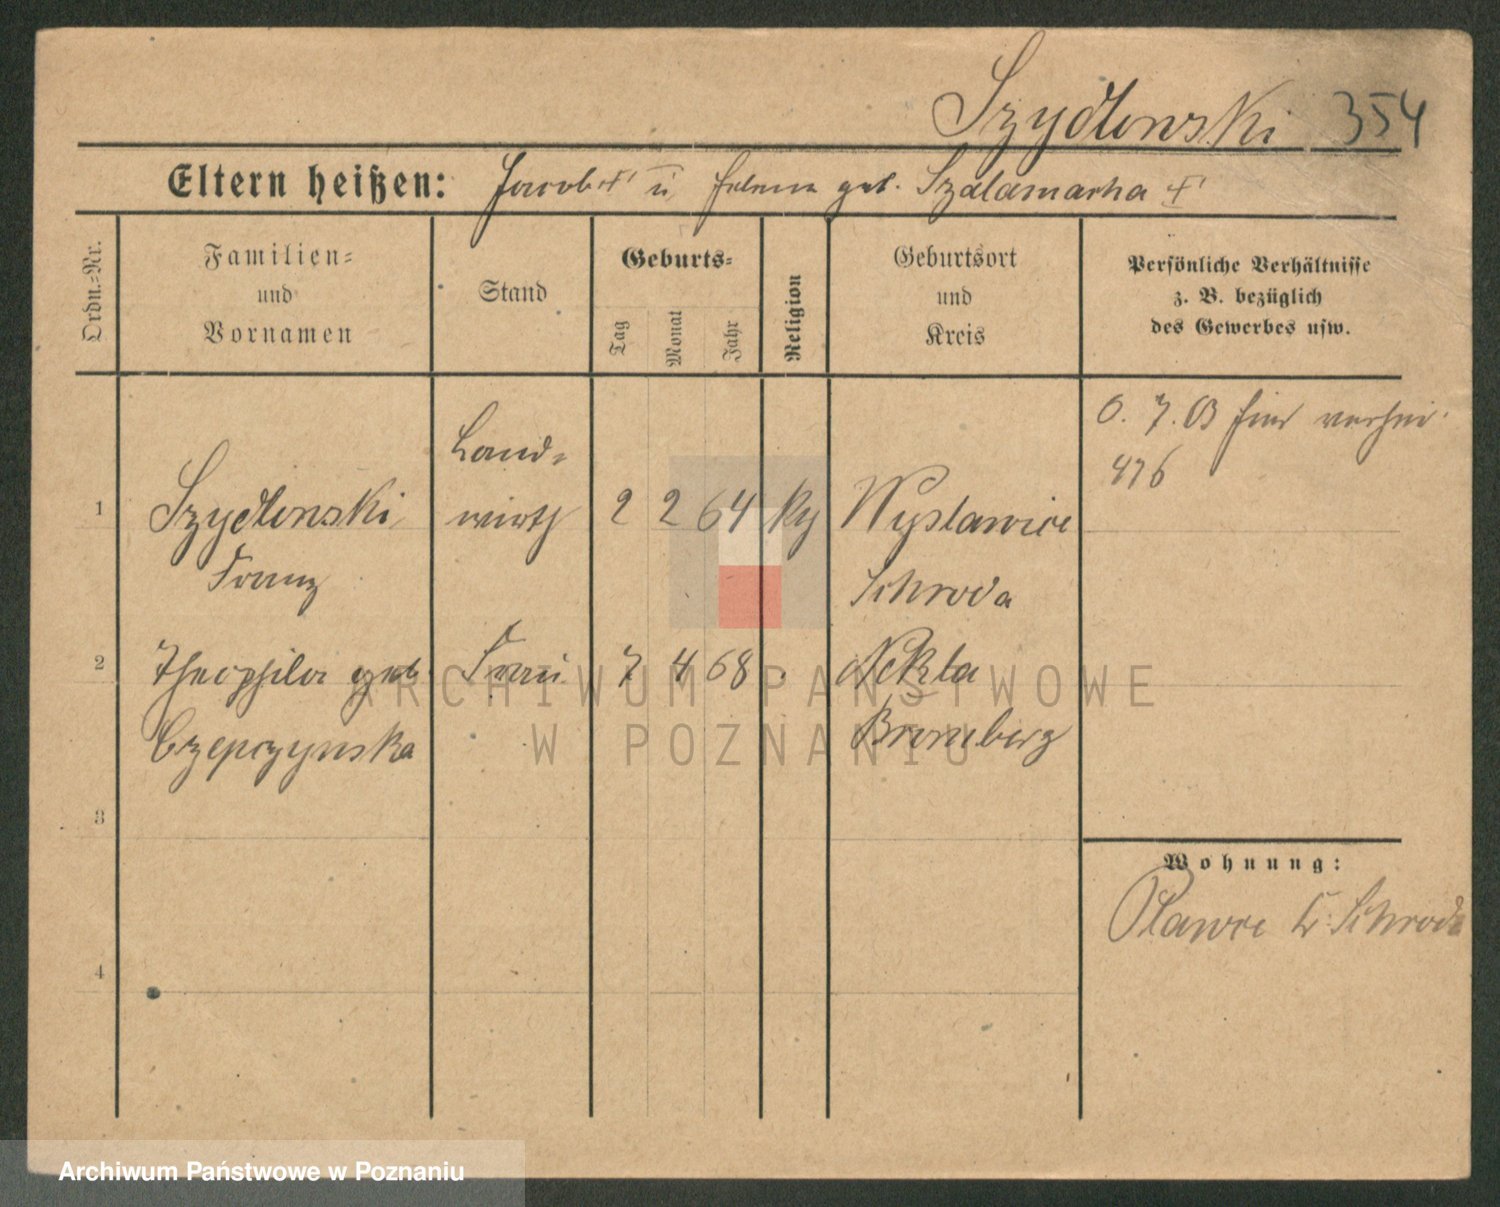 Szydlowski 354
Eltern heißen: Jacob + u. Helena geb. Szalamacha +
Ordn.-Nr.
Familien-
und
Vornamen
Stand
Geburts-
Tag
Monat
Jahr
Religion
Geburtsort
und
Kreis
Persönliche Verhältnisse
z. B. bezüglich
des Gewerbes usw.
1
Szydlowski
Franz
Land-
wirth
2 2 64
Wyslawice
Schroda
7. 03 hier
476
2
Theophila geb.
Czepczynska
Frau
7 4 68
Nekla
Bromberg
3
4
Wohnung:
Plawce Kr. Schroda
ARCHIWUM PAŃSTWOWE
W POZNANIU
Archiwum Państwowe w Poznaniu